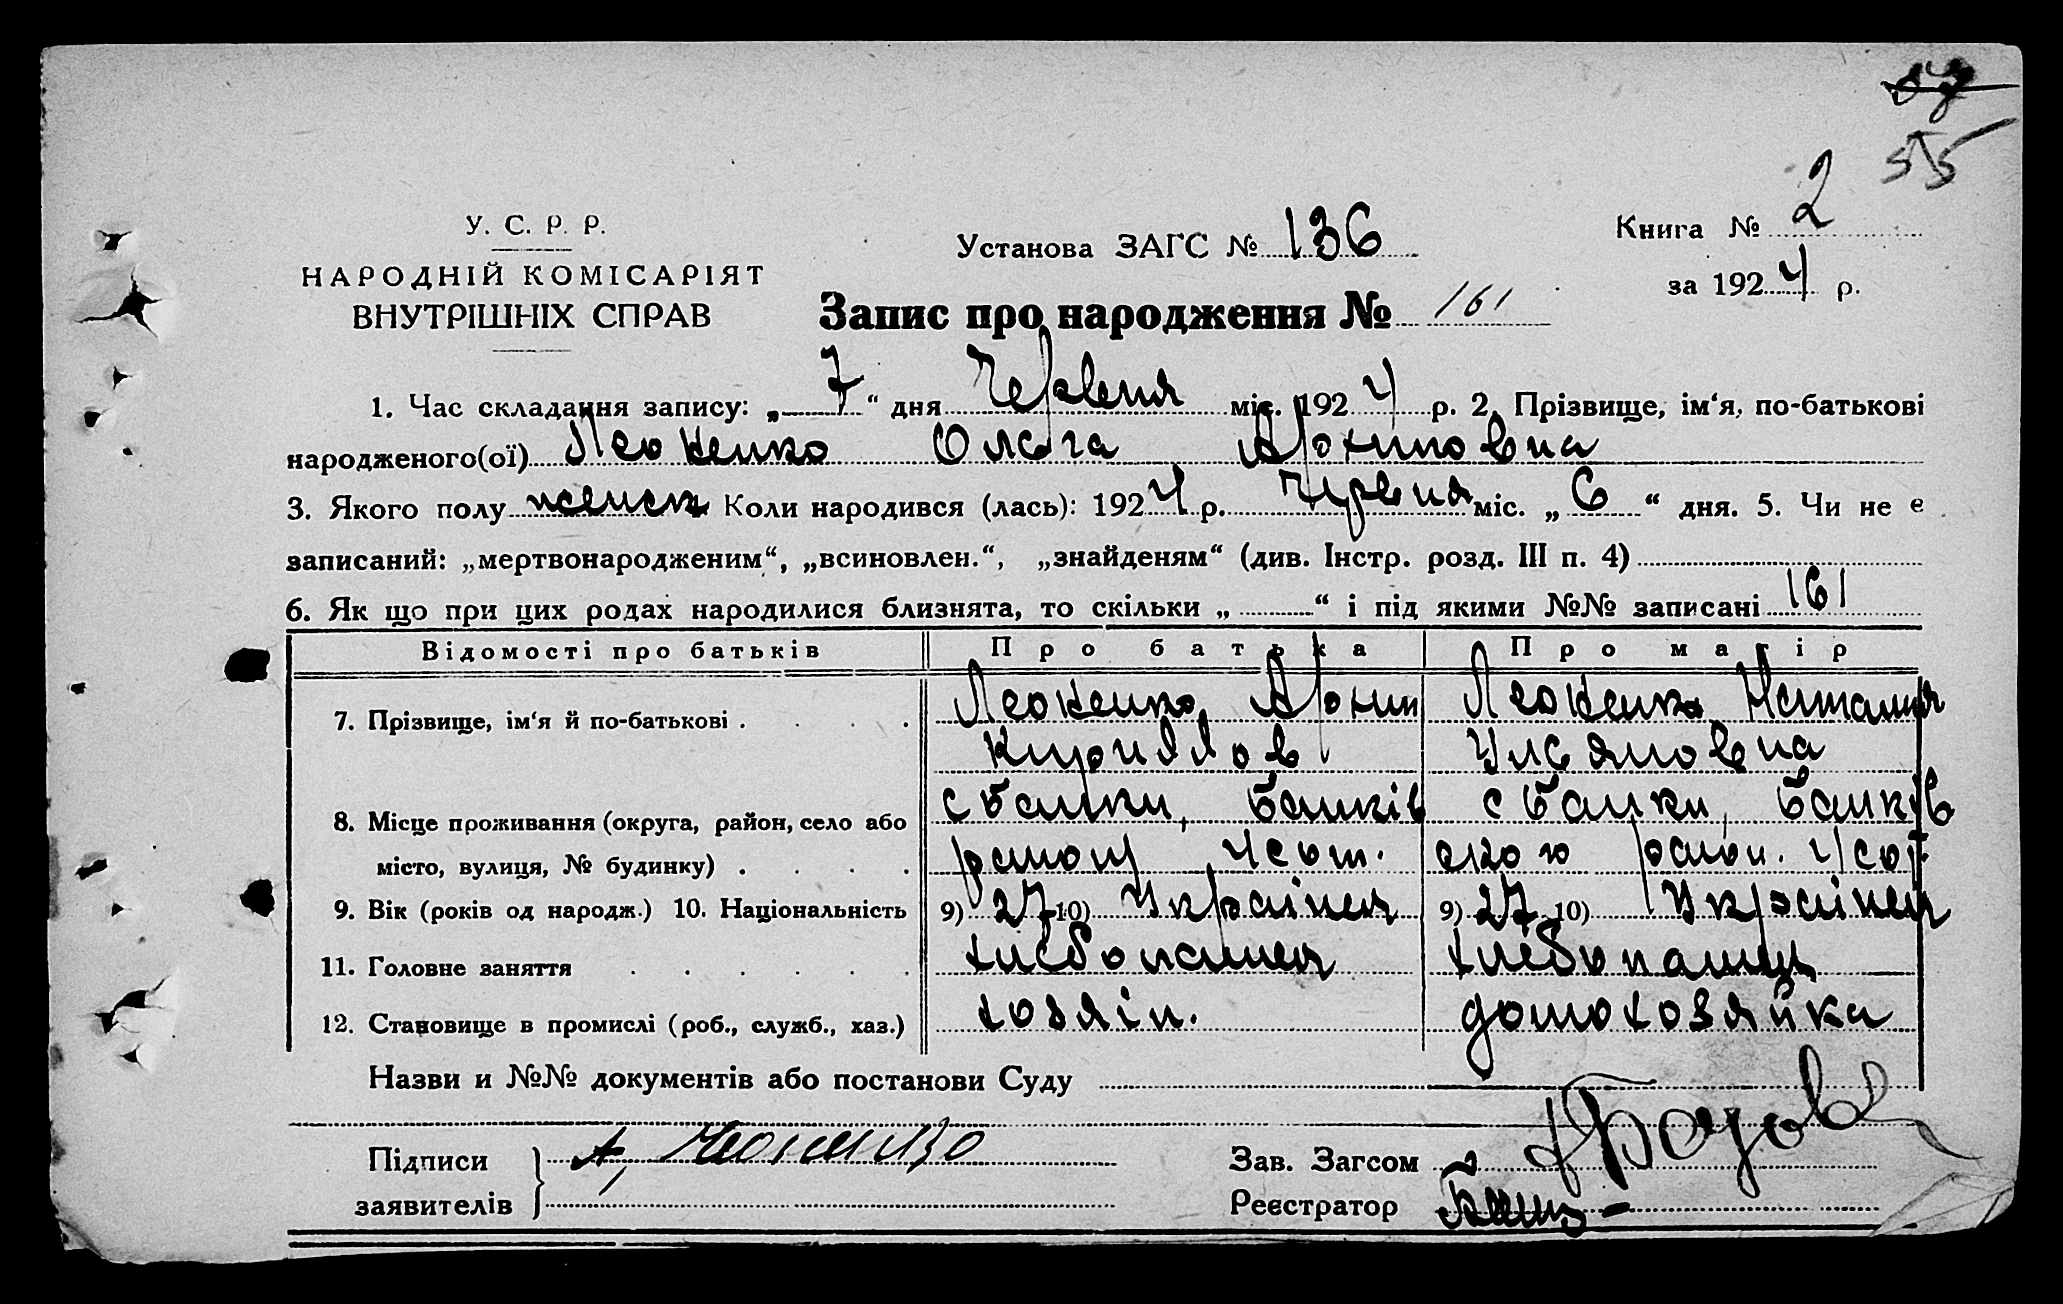 55
У. С. Р. Р.
НАРОДНІЙ КОМІСАРІЯТ
ВНУТРІШНІХ СПРАВ
Установа ЗАГС № 136
Книга № 2
за 1924 р.
Запис про народження № 161
1. Час складання запису: „ 7 “ дня Червня міс. 1924 р. 2. Прізвище, ім‘я, по-батькові
народженого(ої) Леоненко Ольга Архиповна
3. Якого полу женск Коли народився (лась): 1924 р. Червня міс. „ 6 “ дня. 5. Чи не є
записаний: „мертвонародженим“, „всиновлен.“, „знайденям“ (див. Інстр. розд. III п. 4)
6. Як що при цих родах народилися близнята, то скільки „ “ і під якими №№ записані 161
Відомості про батьків Про батька Про матір
7. Прізвище, ім‘я й по-батькові . Леоненко Архип Леоненко Наталия
Кирилов Ульяновна
8. Місце проживання (округа, район, село або с Банки, Банків с Банки, Банків
місто, вулиця, № будинку) . району ською район.
9. Вік (років од народж.) 10. Національність 9) 27 10) Українец 9) 27 10) Українец
11. Головне заняття хлебопашец хлебопашец
12. Становище в промислі (роб., служб., хаз.) хозяін. домохозяйка
Назви и №№ документів або постанови Суду
Підписи А. Леоненко Зав. Загсом
заявителів Реєстратор